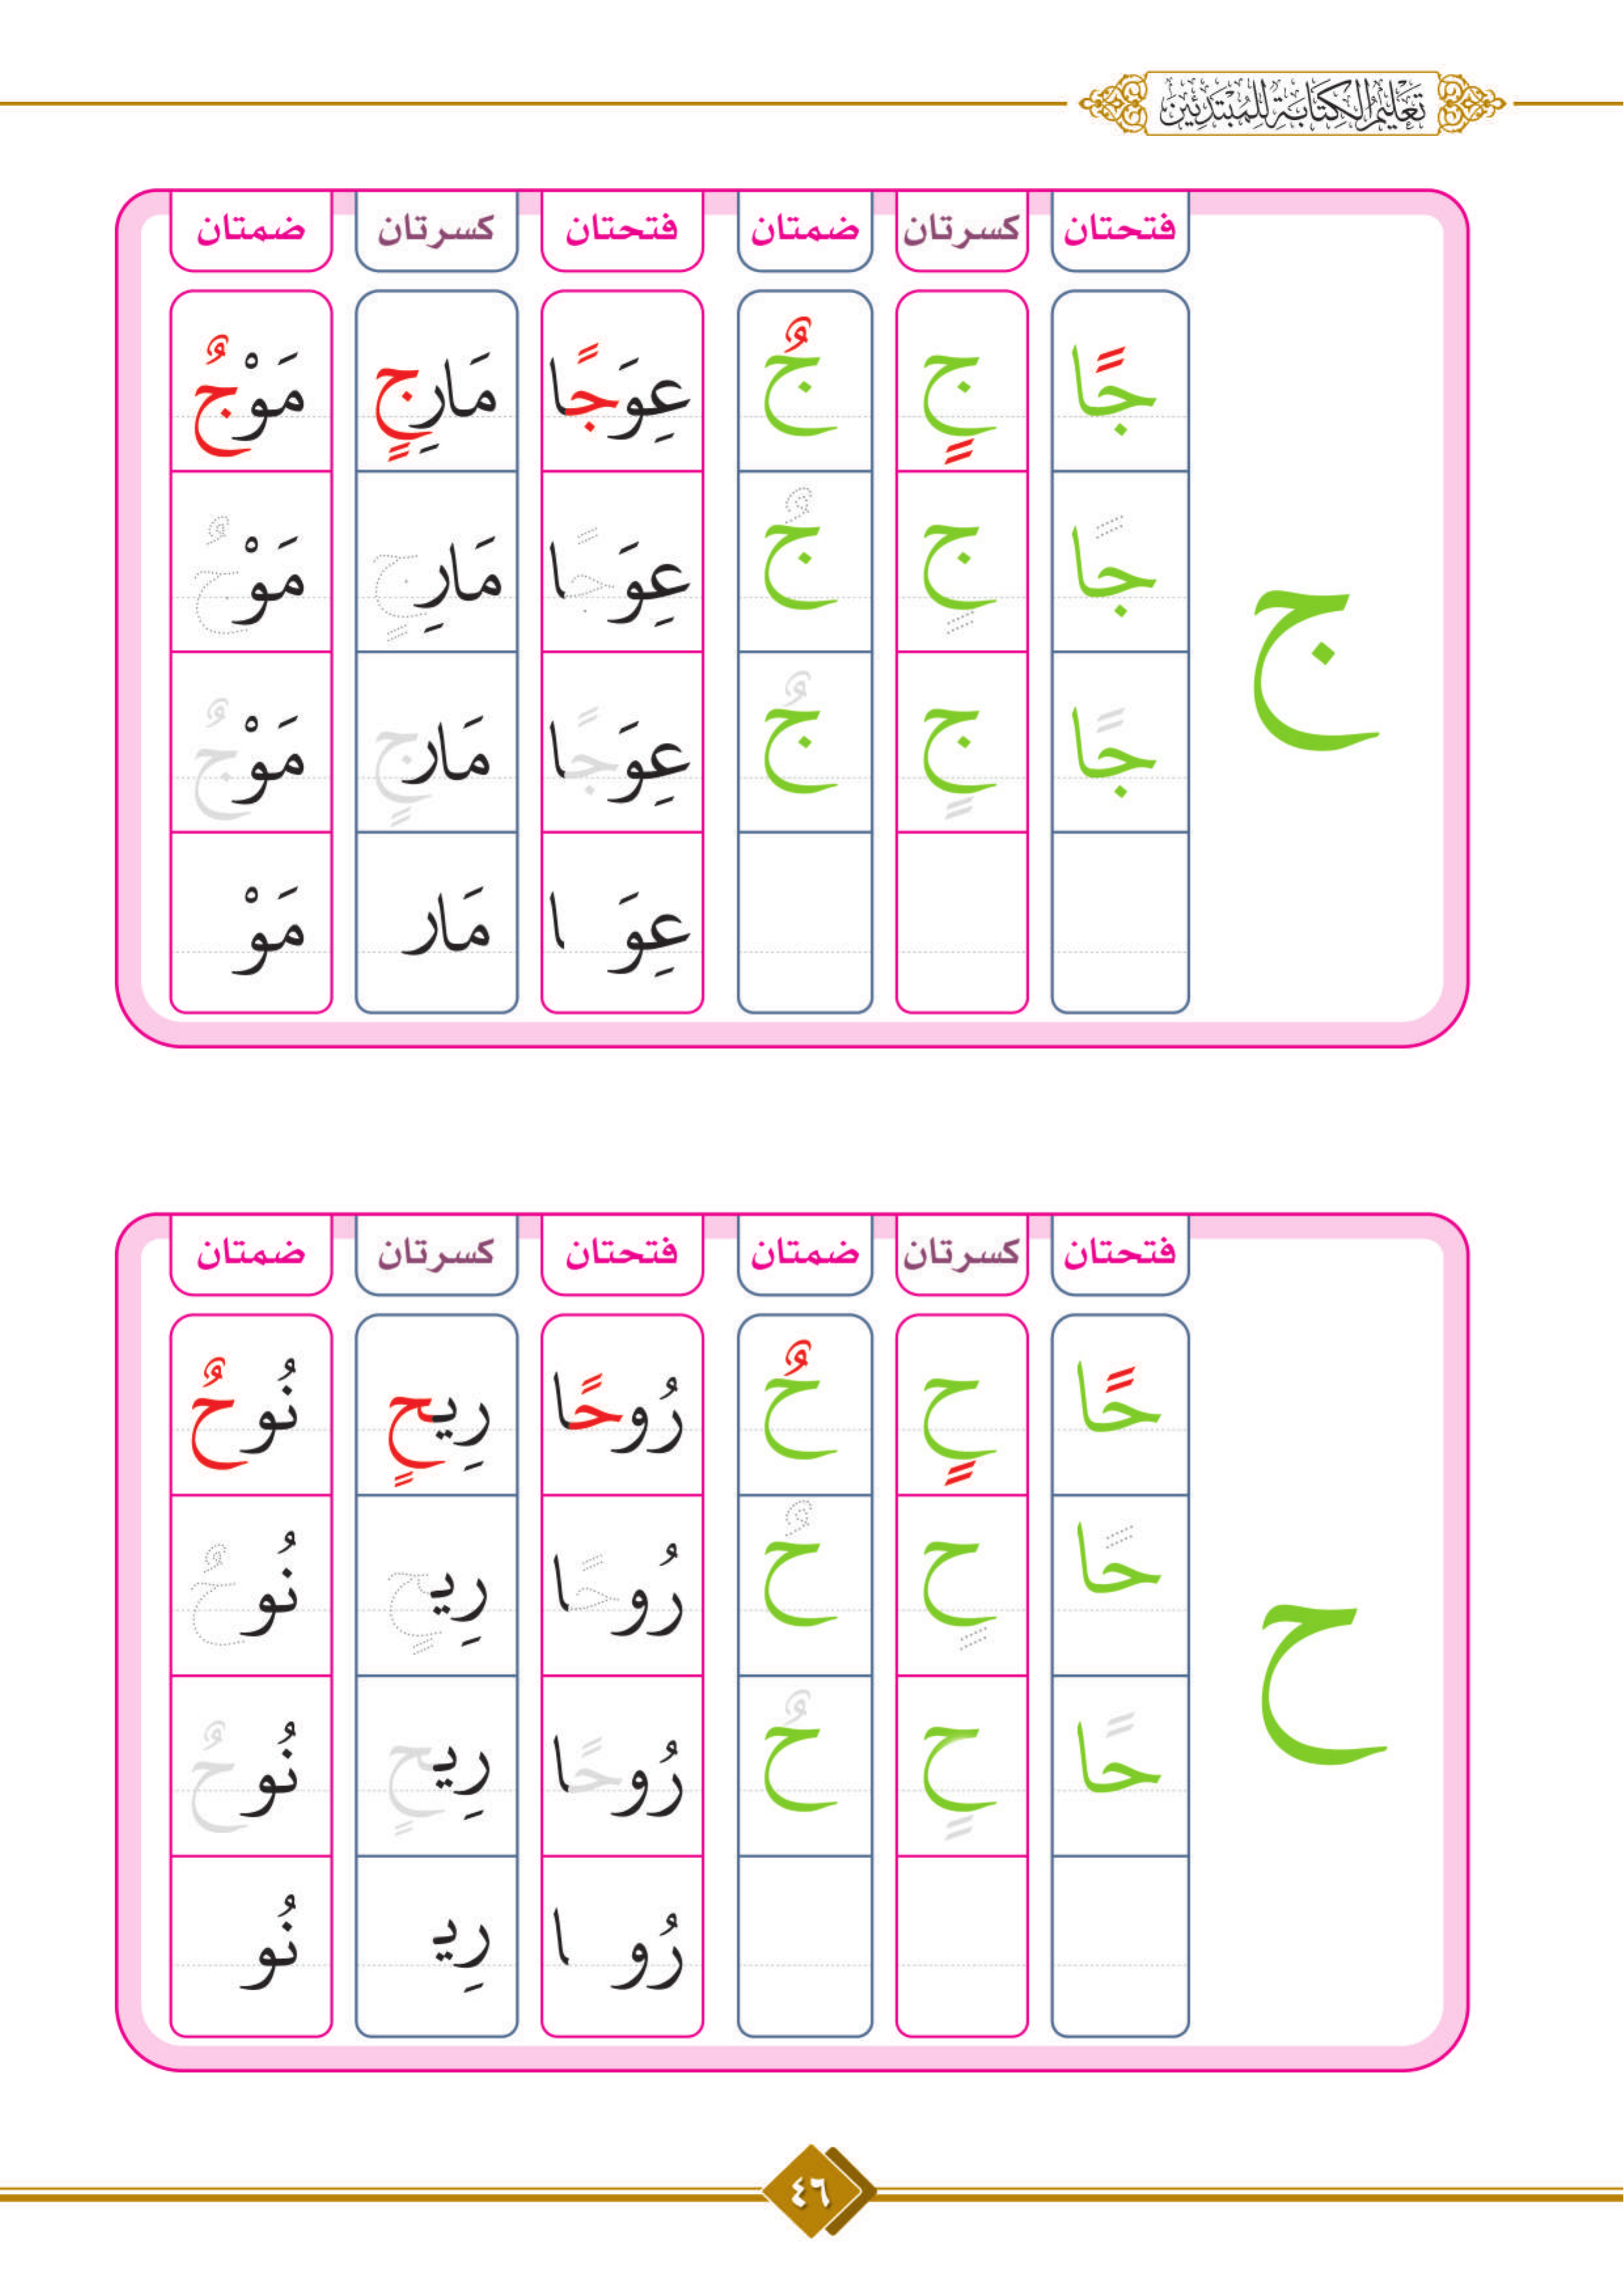 تَعْلِيمُ الْكِتَابَةِ لِلْمُبْتَدِئِينَ
فتحتان كسرتان ضمتان فتحتان كسرتان ضمتان
جًا جٍ جٌ عِوَجًا مَارِجٍ مَوْجٌ
جًا جٍ جٌ عِوَجًا مَارِجٍ مَوْجٌ
ج
جًا جٍ جٌ عِوَجًا مَارجٍ مَوْجٌ
عِوَ ا مَار مَوْ
فتحتان كسرتان ضمتان فتحتان كسرتان ضمتان
حًا حٍ حٌ رُوحًا رِيحٍ نُوحٌ
حًا حٍ حٌ رُوحًا رِيحٍ نُوحٌ
ح
حًا حٍ حٌ رُوحًا رِيحٍ نُوحٌ
رُو ا رِيـ نُو
٤٦